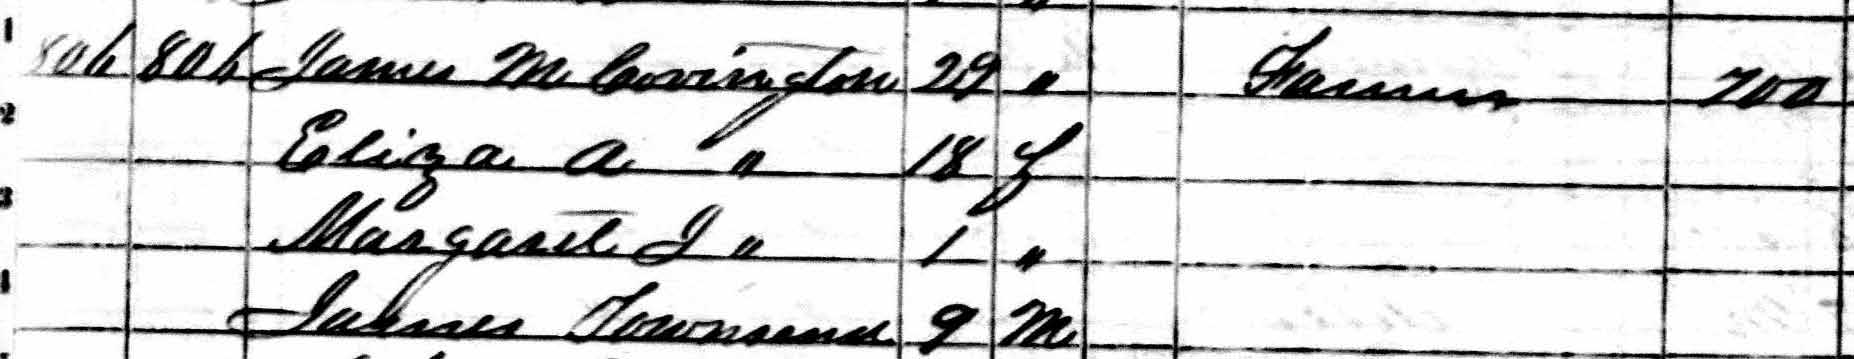 1 806 806 James M Covington 29 " Farmer 700
2 Eliza A " 18 f
3 Margaret J " 1 "
4 James Townsend 9 M